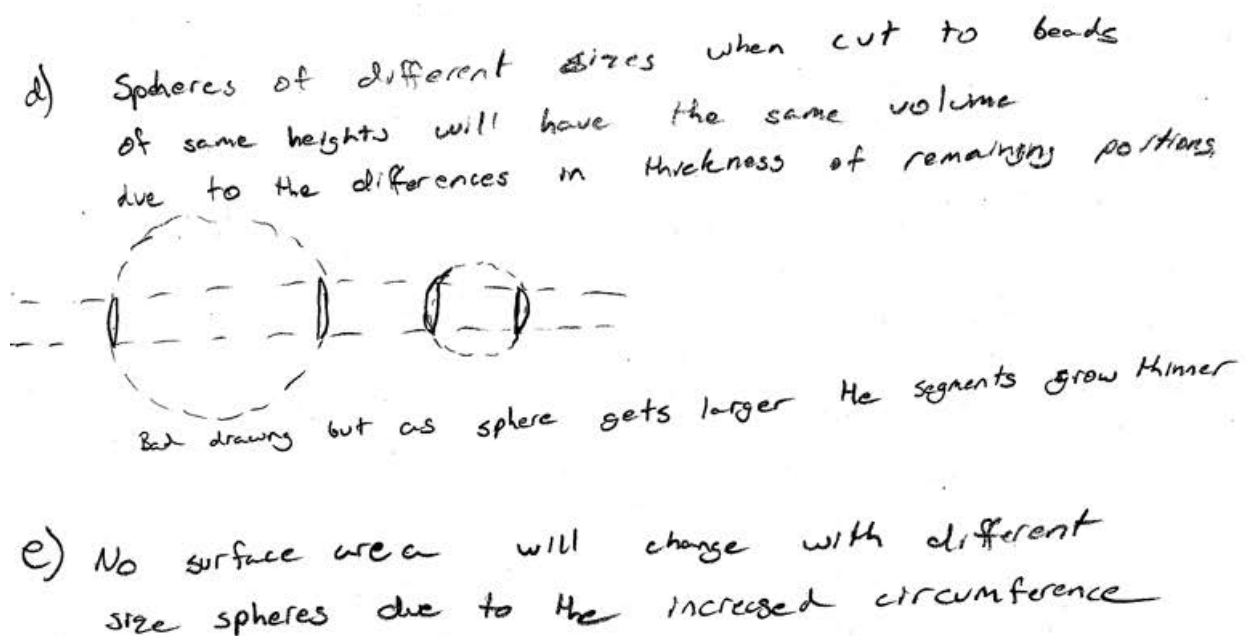 d) Spheres of different sizes when cut to beads
of same heights will have the same volume
due to the differences in thickness of remaining portions.
Bad drawing but as sphere gets larger the segments grow thinner
e) No surface area will change with different
size spheres due to the increased circumference